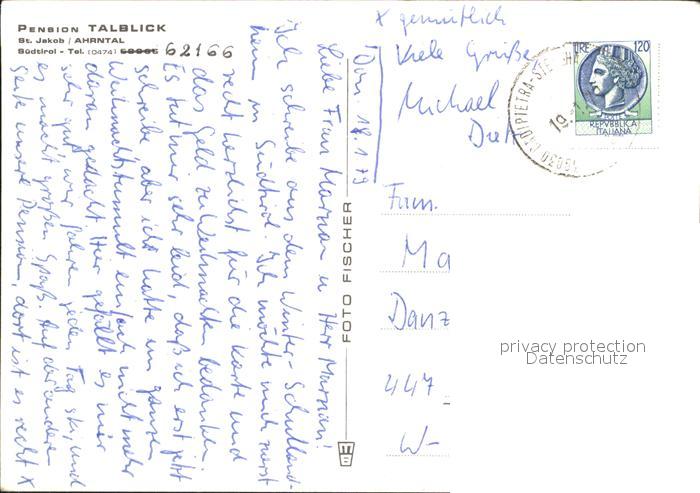 PENSION TALBLICK
St. Jakob / AHRNTAL
Südtirol - Tel. (0474) 62166
Don. 18.1.79
Liebe Frau Marzian u Herr Marzian!
Ich schreibe aus dem Winter-Schulland-
heim in Südtirol. Ich möchte mich zuerst
recht herzlichst für die Karte und
das Geld zu Weihnachten bedanken.
Es tut mir sehr leid, daß ich erst jetzt
schreibe aber ich hatte im ganzen
Weihnachtstummult einfach nicht mehr
daran gedacht. Hier gefällt es mir
sehr gut, wir fahren jeden Tag ski, und
es macht großen Spaß. Auf der anderen
Seite unsere Pension, dort ist es recht x
x gemütlich
Viele Grüße
Michael
FOTO FISCHER
LIRE 120
REPVBBLICA
ITALIANA
39030
19-1
Fam.
Ma
Danz
447
W-
privacy protection
Datenschutz